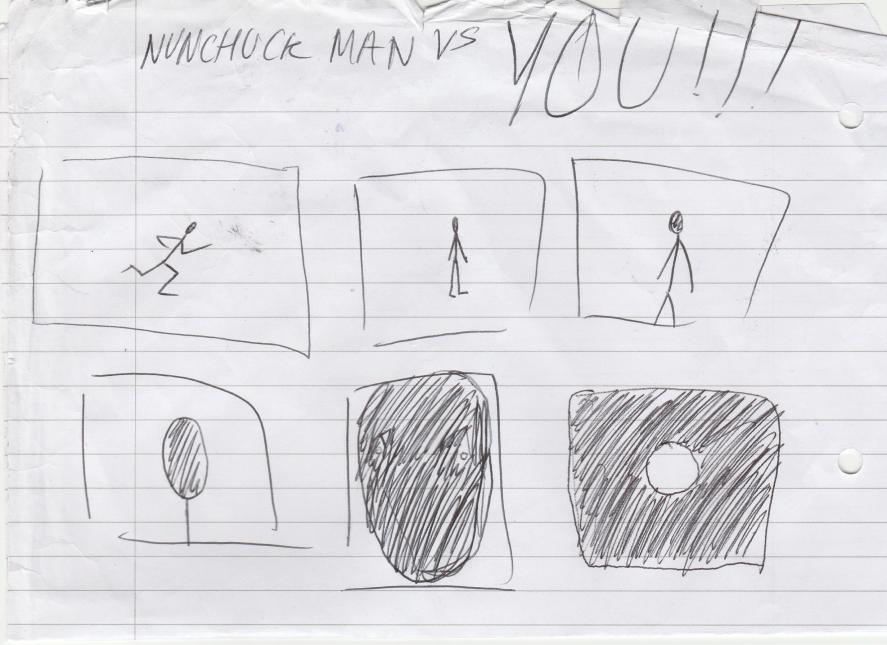 NUNCHUCK MAN VS YOU!!!